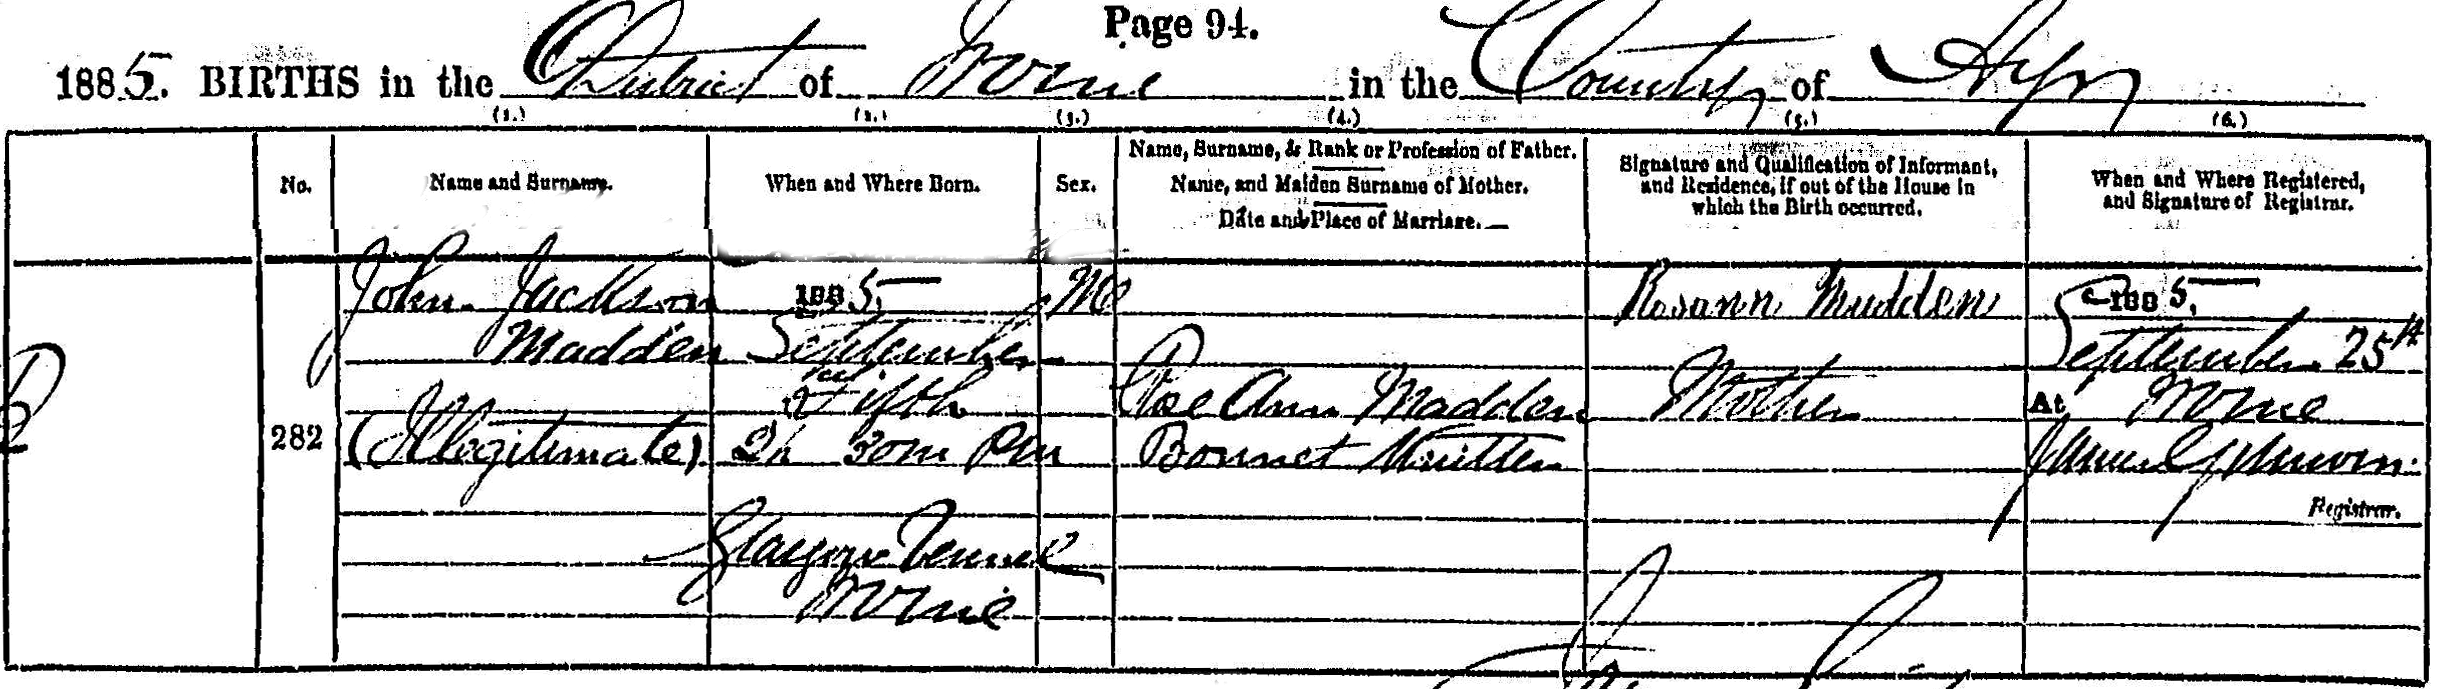 Page 94.
1885. BIRTHS in the District of Irvine in the County of Ayr
(1.) (2.) (3.) (4.) (5.) (6.)
No.
Name and Surname.
When and Where Born.
Sex.
Name, Surname, & Rank or Profession of Father.
Name, and Maiden Surname of Mother.
Date and Place of Marriage.
Signature and Qualification of Informant,
and Residence, if out of the House in
which the Birth occurred.
When and Where Registered,
and Signature of Registrar.
282
John Jackson
Madden
(Illegitimate)
1885,
September
Fifth
2h 30m PM
Glasgow Vennel
Irvine
M
Rose Ann Madden
Bonnet Knitter
Rosann Madden
Mother
1885,
September 25th
At Irvine
James Johnson
Registrar.